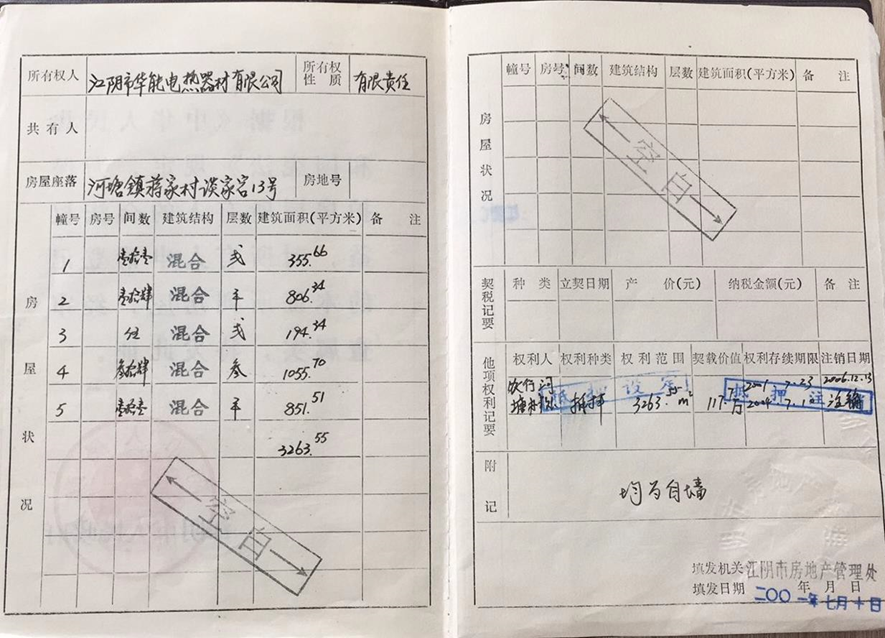 所有权人 江阴市华能电热器材有限公司 所有权性质 有限责任
共有人
房屋座落 河塘镇蒋家村谈家宕13号 房地号
房屋状况
幢号 房号 间数 建筑结构 层数 建筑面积(平方米) 备注
1 壹拾壹 混合 弍 355.66
2 壹拾肆 混合 平 806.34
3 混合 弍 194.34
4 叁拾肆 混合 叁 1055.70
5 壹拾壹 混合 平 851.51
3263.55
空白
房屋状况
幢号 房号 间数 建筑结构 层数 建筑面积(平方米) 备注
空白
契税记要
种类 立契日期 产价(元) 纳税金额(元) 备注
他项权利记要
权利人 权利种类 权利范围 契载价值 权利存续期限 注销日期
2006.12.13
抵押 3263.55m² 117万 注销
附记
均为自墙
填发机关 江阴市房地产管理处
填发日期 二〇〇一年七月十日
年 月 日